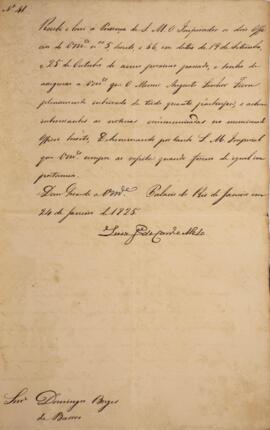 Nº 41
Recebi e levei á Presença de S M O Imperador os dois Offi
cios de Vmce nos 5 e 66, em datas de 19 de Setembro,
e 25 de Outubro do anno proximo passado, e tenho de
assegurar a Vmce que O Mesmo Augusto Senhor Ficou
plenamente inteirado de tudo quanto participou; e achou
interessantes as noticias communicadas no mencionado
Officio Esperando por tanto S. M. Imperial
que Vmce sempre as repita quando forem de igual im
portancia.
Deos Guarde a Vmce Palacio do Rio de Janeiro em
24 de Janeiro de 1825
Luiz Je de Carvo e Mello
Snr Domingos Borges
de Barros